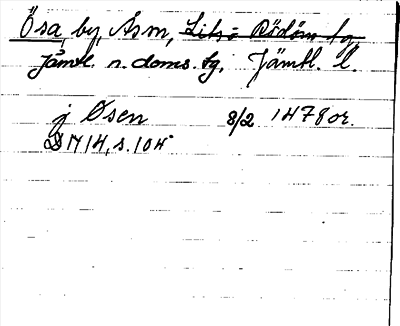 Ösa, by, Åsm, Lits o Rödöns tg
Jämtl. n. doms. tg, Jämtl. l.
j Øsen 8/2 1478 or.
DN 14, s. 104